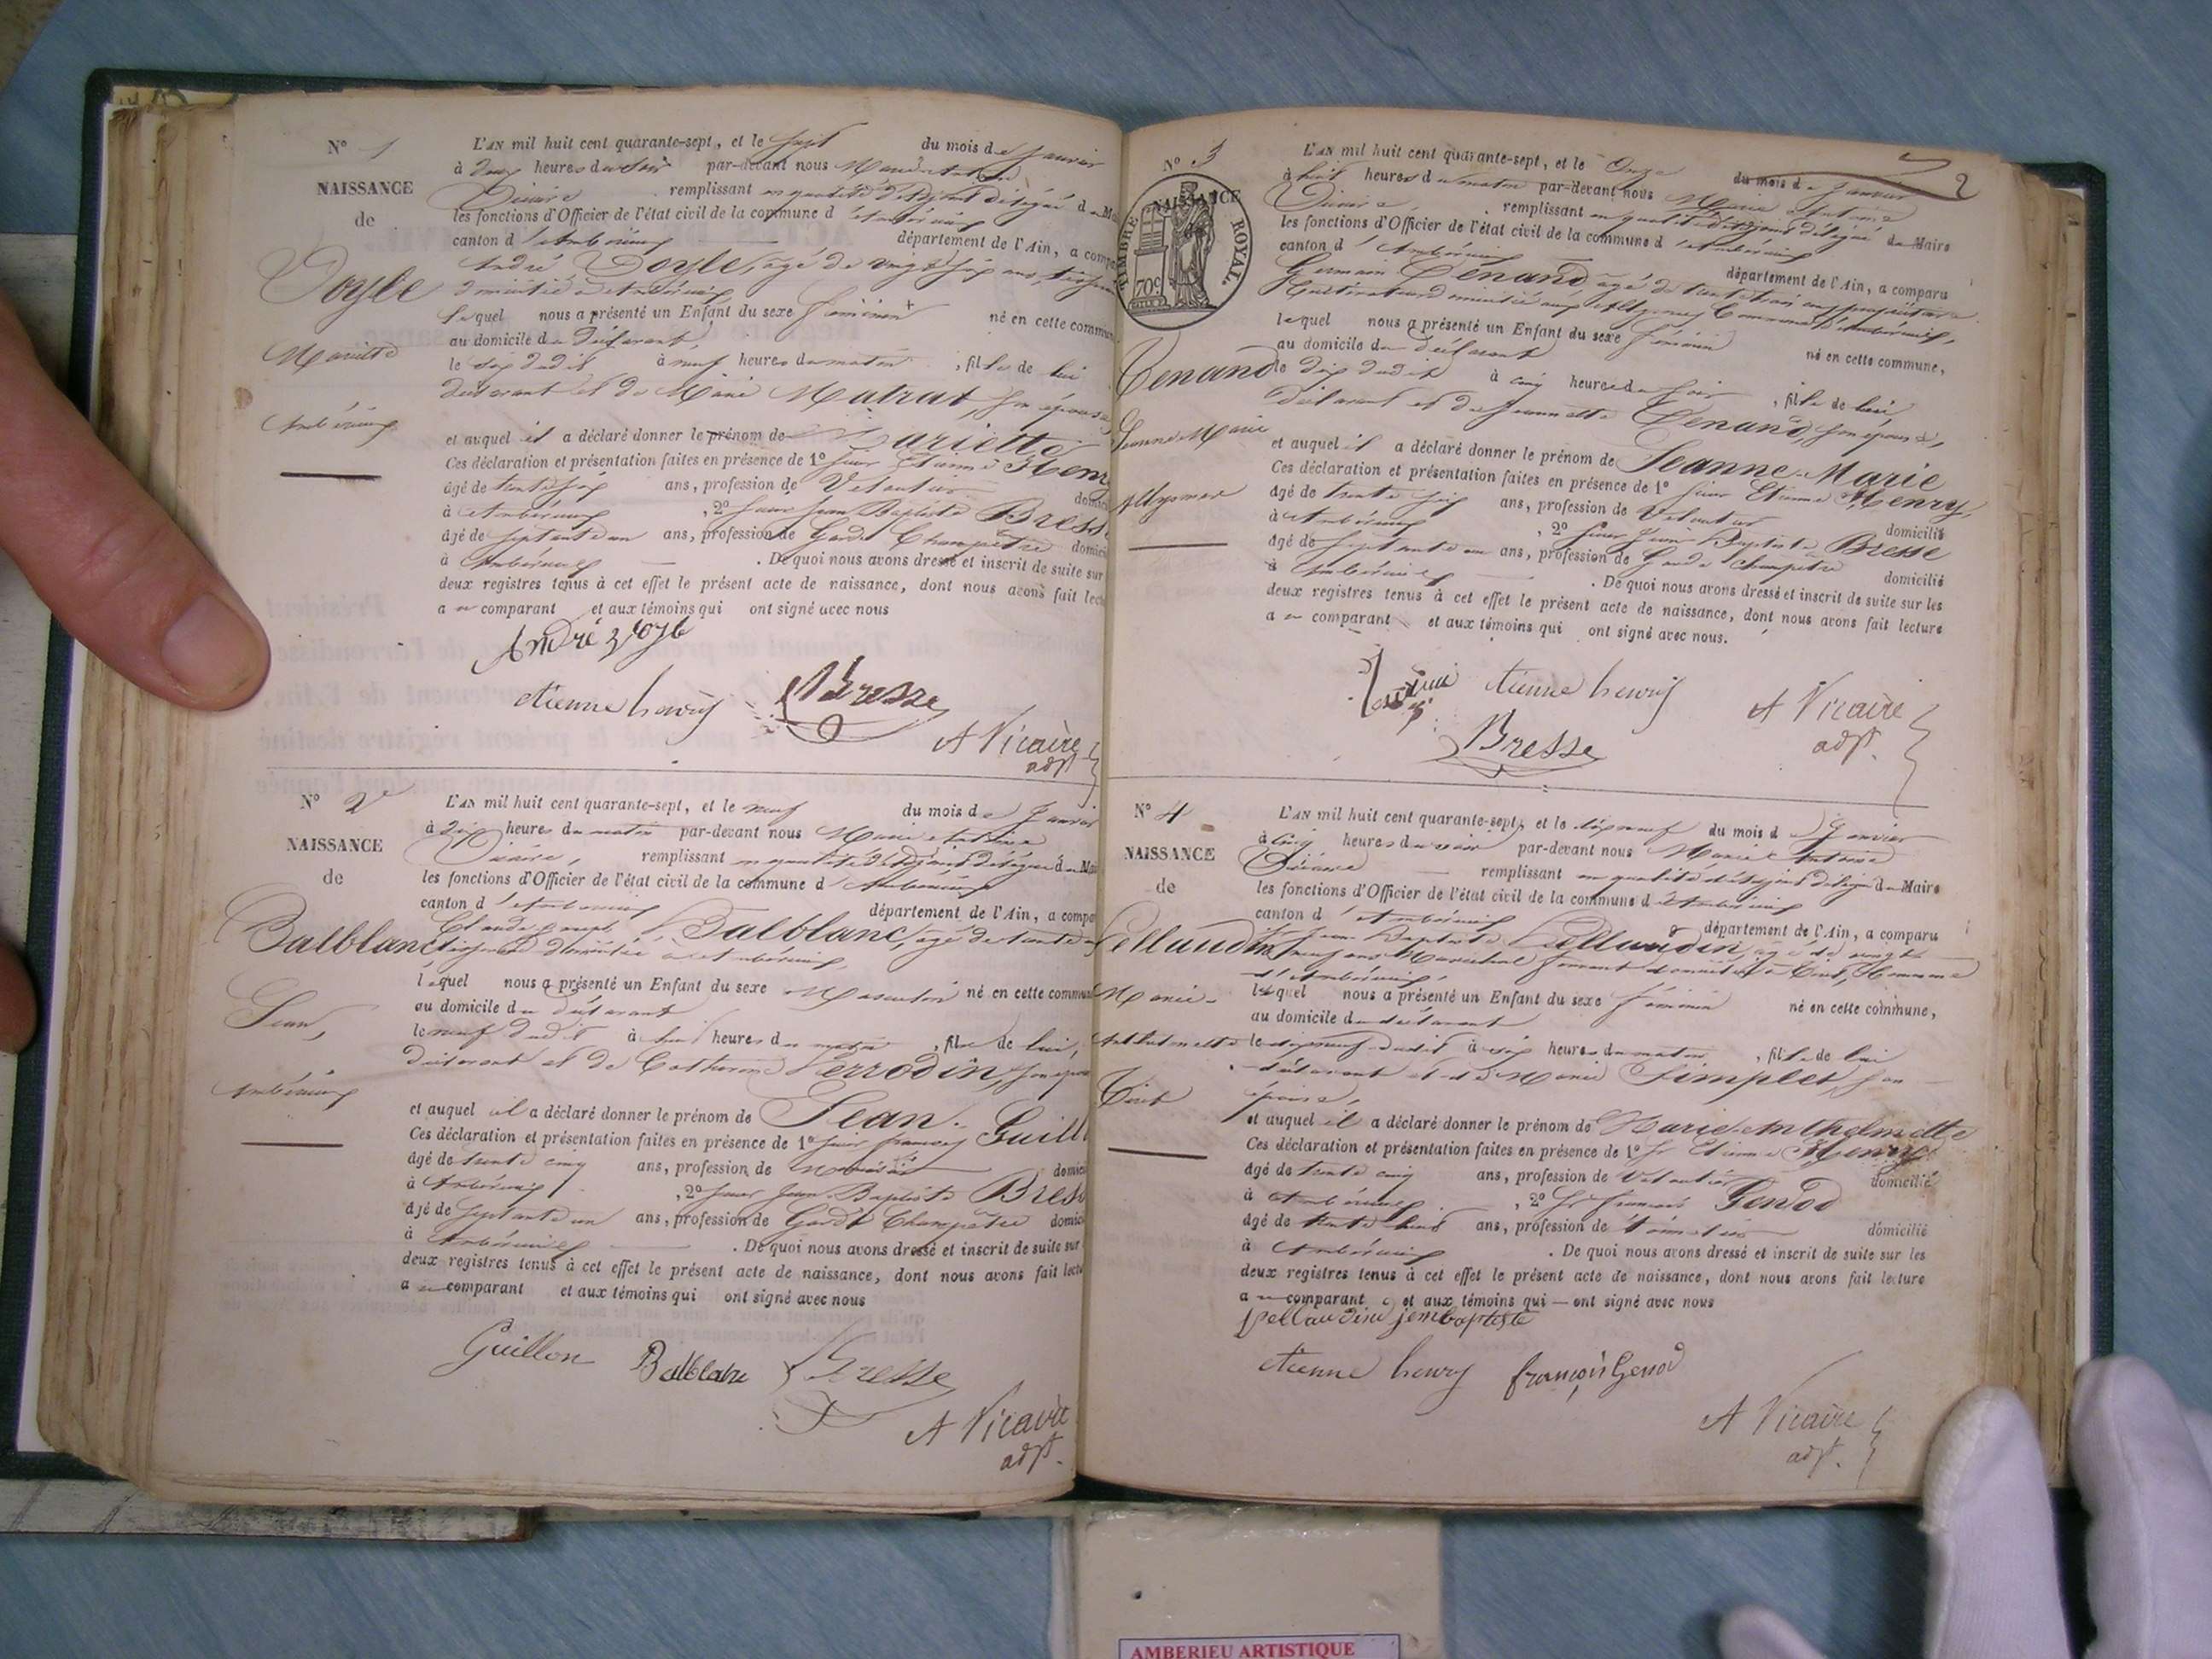 N° 1
NAISSANCE
de
Doyle
Mariette
Ambérieux
L'AN mil huit cent quarante-sept, et le sept du mois de Janvier
à deux heures du soir par-devant nous Marie Antoine
Vicaire remplissant en qualité d'adjoint délégué du Mai
les fonctions d'Officier de l'état civil de la commune d'Ambérieux
canton d'Ambérieux département de l'Ain, a compa
André Doyle, âgé de vingt six ans,
domicilié à Ambérieux
lequel nous a présenté un Enfant du sexe féminin né en cette commun
au domicile du déclarant,
le dudit à neuf heures du matin, fille de lui
déclarant et de Marie Matrat, son épouse
et auquel il a déclaré donner le prénom de Mariette
Ces déclaration et présentation faites en présence de 1° sieur Etienne Henr
âgé de trente six ans, profession de Veloutier domici
à Ambérieux, 2° sieur Jean Baptiste Bress
âgé de septante un ans, profession de Garde Champêtre domici
à Ambérieux. De quoi nous avons dressé et inscrit de suite sur
deux registres tenus à cet effet le présent acte de naissance, dont nous avons fait lect
au comparant et aux témoins qui ont signé avec nous
André Doyle
etienne henry Bresse
A Vicaire
adjt
N° 2
NAISSANCE
de
Balblanc
Jean,
Ambérieux
L'AN mil huit cent quarante-sept, et le neuf du mois de Janvier
à dix heures du matin par-devant nous Marie Antoine
Vicaire, remplissant en qualité d'adjoint délégué du Mai
les fonctions d'Officier de l'état civil de la commune d'Ambérieux
canton d'Ambérieux département de l'Ain, a compa
Claude Joseph Balblanc, âgé de trente
domicilié à Ambérieux,
lequel nous a présenté un Enfant du sexe Masculin né en cette commun
au domicile du déclarant
le neuf dudit à huit heures du matin, fils de lui,
déclarant et de Catherine Perrodin, son épou
et auquel il a déclaré donner le prénom de Jean.
Ces déclaration et présentation faites en présence de 1° sieur françois Guill
âgé de trente cinq ans, profession de domici
à Ambérieux, 2° sieur Jean Baptiste Bress
âgé de septante un ans, profession de Garde Champêtre domici
à Ambérieux. De quoi nous avons dressé et inscrit de suite sur
deux registres tenus à cet effet le présent acte de naissance, dont nous avons fait lectu
au comparant et aux témoins qui ont signé avec nous
Guillon Balblanc Bresse
A Vicaire
adjt.
2
N° 3
NAISSANCE
TIMBRE ROYAL.
70c
Tenand
Jeanne Marie
L'AN mil huit cent quarante-sept, et le Onze du mois de Janvier
à huit heures du matin par-devant nous Marie Antoine
Vicaire remplissant en qualité d'adjoint délégué du Maire
les fonctions d'Officier de l'état civil de la commune d'Ambérieux
canton d'Ambérieux département de l'Ain, a comparu
Germain Tenand âgé de trente trois ans propriétaire
Cultivateur domicilié aux Allymes Commune d'Ambérieux,
lequel nous a présenté un Enfant du sexe féminin né en cette commune,
au domicile du déclarant
le dix dudit à cinq heures du soir, fille de lui
déclarant et de Jeannette Tenand, son épouse,
et auquel il a déclaré donner le prénom de Jeanne-Marie
Ces déclaration et présentation faites en présence de 1° sieur Etienne Henry,
âgé de trente six ans, profession de Veloutier domicilié
à Ambérieux, 2° sieur Jean Baptiste Bresse
âgé de septante un ans, profession de Garde champêtre domicilié
à Ambérieux. De quoi nous avons dressé et inscrit de suite sur les
deux registres tenus à cet effet le présent acte de naissance, dont nous avons fait lecture
au comparant et aux témoins qui ont signé avec nous.
etienne henry A Vicaire
Bresse adjt.
N° 4
NAISSANCE
de
Pellaudin
Marie-
Anthelmette
Tiret
L'AN mil huit cent quarante-sept, et le dix neuf du mois de Janvier
à cinq heures du soir par-devant nous Marie Antoine
Vicaire remplissant en qualité d'adjoint délégué du Maire
les fonctions d'Officier de l'état civil de la commune d'Ambérieux
canton d'Ambérieux département de l'Ain, a comparu
Sr Jean Baptiste Pellaudin, âgé de vingt
neuf ans Maréchal ferrant domicilié à Tiret, Commune
d'Ambérieux,
lequel nous a présenté un Enfant du sexe féminin né en cette commune,
au domicile du déclarant
le dix neuf dudit à six heures du matin, fille de lui
déclarant et de Marie Simplet, son
épouse,
et auquel il a déclaré donner le prénom de Marie Anthelmette
Ces déclaration et présentation faites en présence de 1° Sr Etienne Henry
âgé de trente cinq ans, profession de Veloutier domicilié
à Ambérieux, 2° Sr françois Genod
âgé de trente huit ans, profession de domicilié
à Ambérieux. De quoi nous avons dressé et inscrit de suite sur les
deux registres tenus à cet effet le présent acte de naissance, dont nous avons fait lecture
au comparant et aux témoins qui — ont signé avec nous
pellaudin jembaptiste
etienne henry françois Genod
A Vicaire
adjt.
AMBERIEU ARTISTIQUE